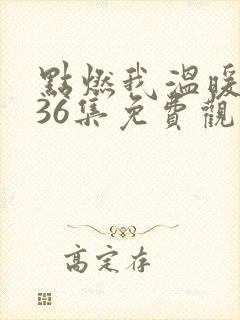 點燃我溫暖
36集免費觀
高定存